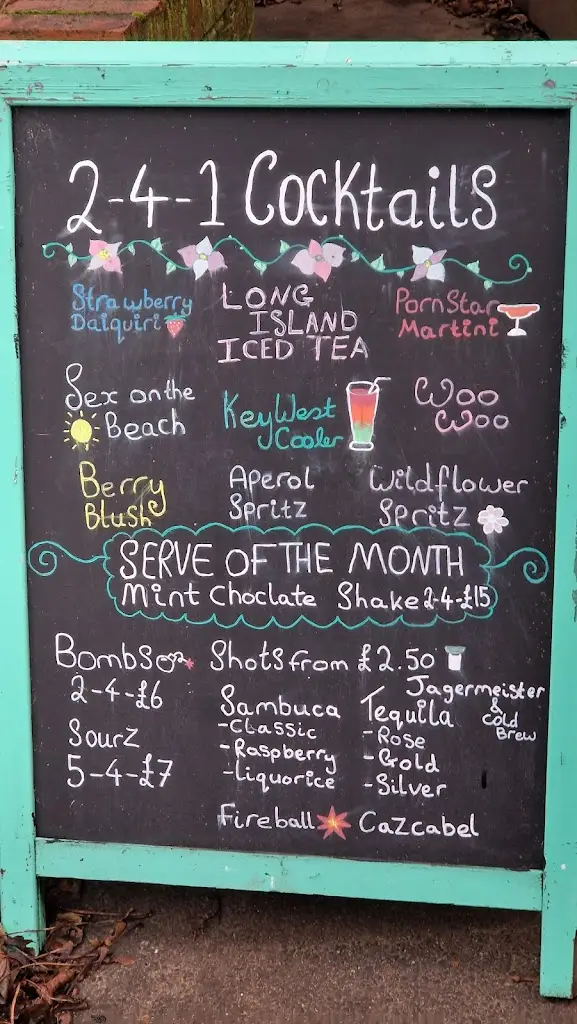 2-4-1 Cocktails
Strawberry
Daiquiri
LONG
ISLAND
ICED TEA
PornStar
Martini
Sex on the
Beach
KeyWest
Cooler
Woo
Woo
Berry
Blush
Aperol
Spritz
Wildflower
Spritz
SERVE OF THE MONTH
Mint Choclate Shake 2-4-£15
Bombs
2-4-£6
Sourz
5-4-£7
Shots from £2.50
Sambuca
-Classic
-Raspberry
-Liquorice
Tequila
-Rose
-Gold
-Silver
Jagermeister
&
Cold
Brew
Fireball
Cazcabel